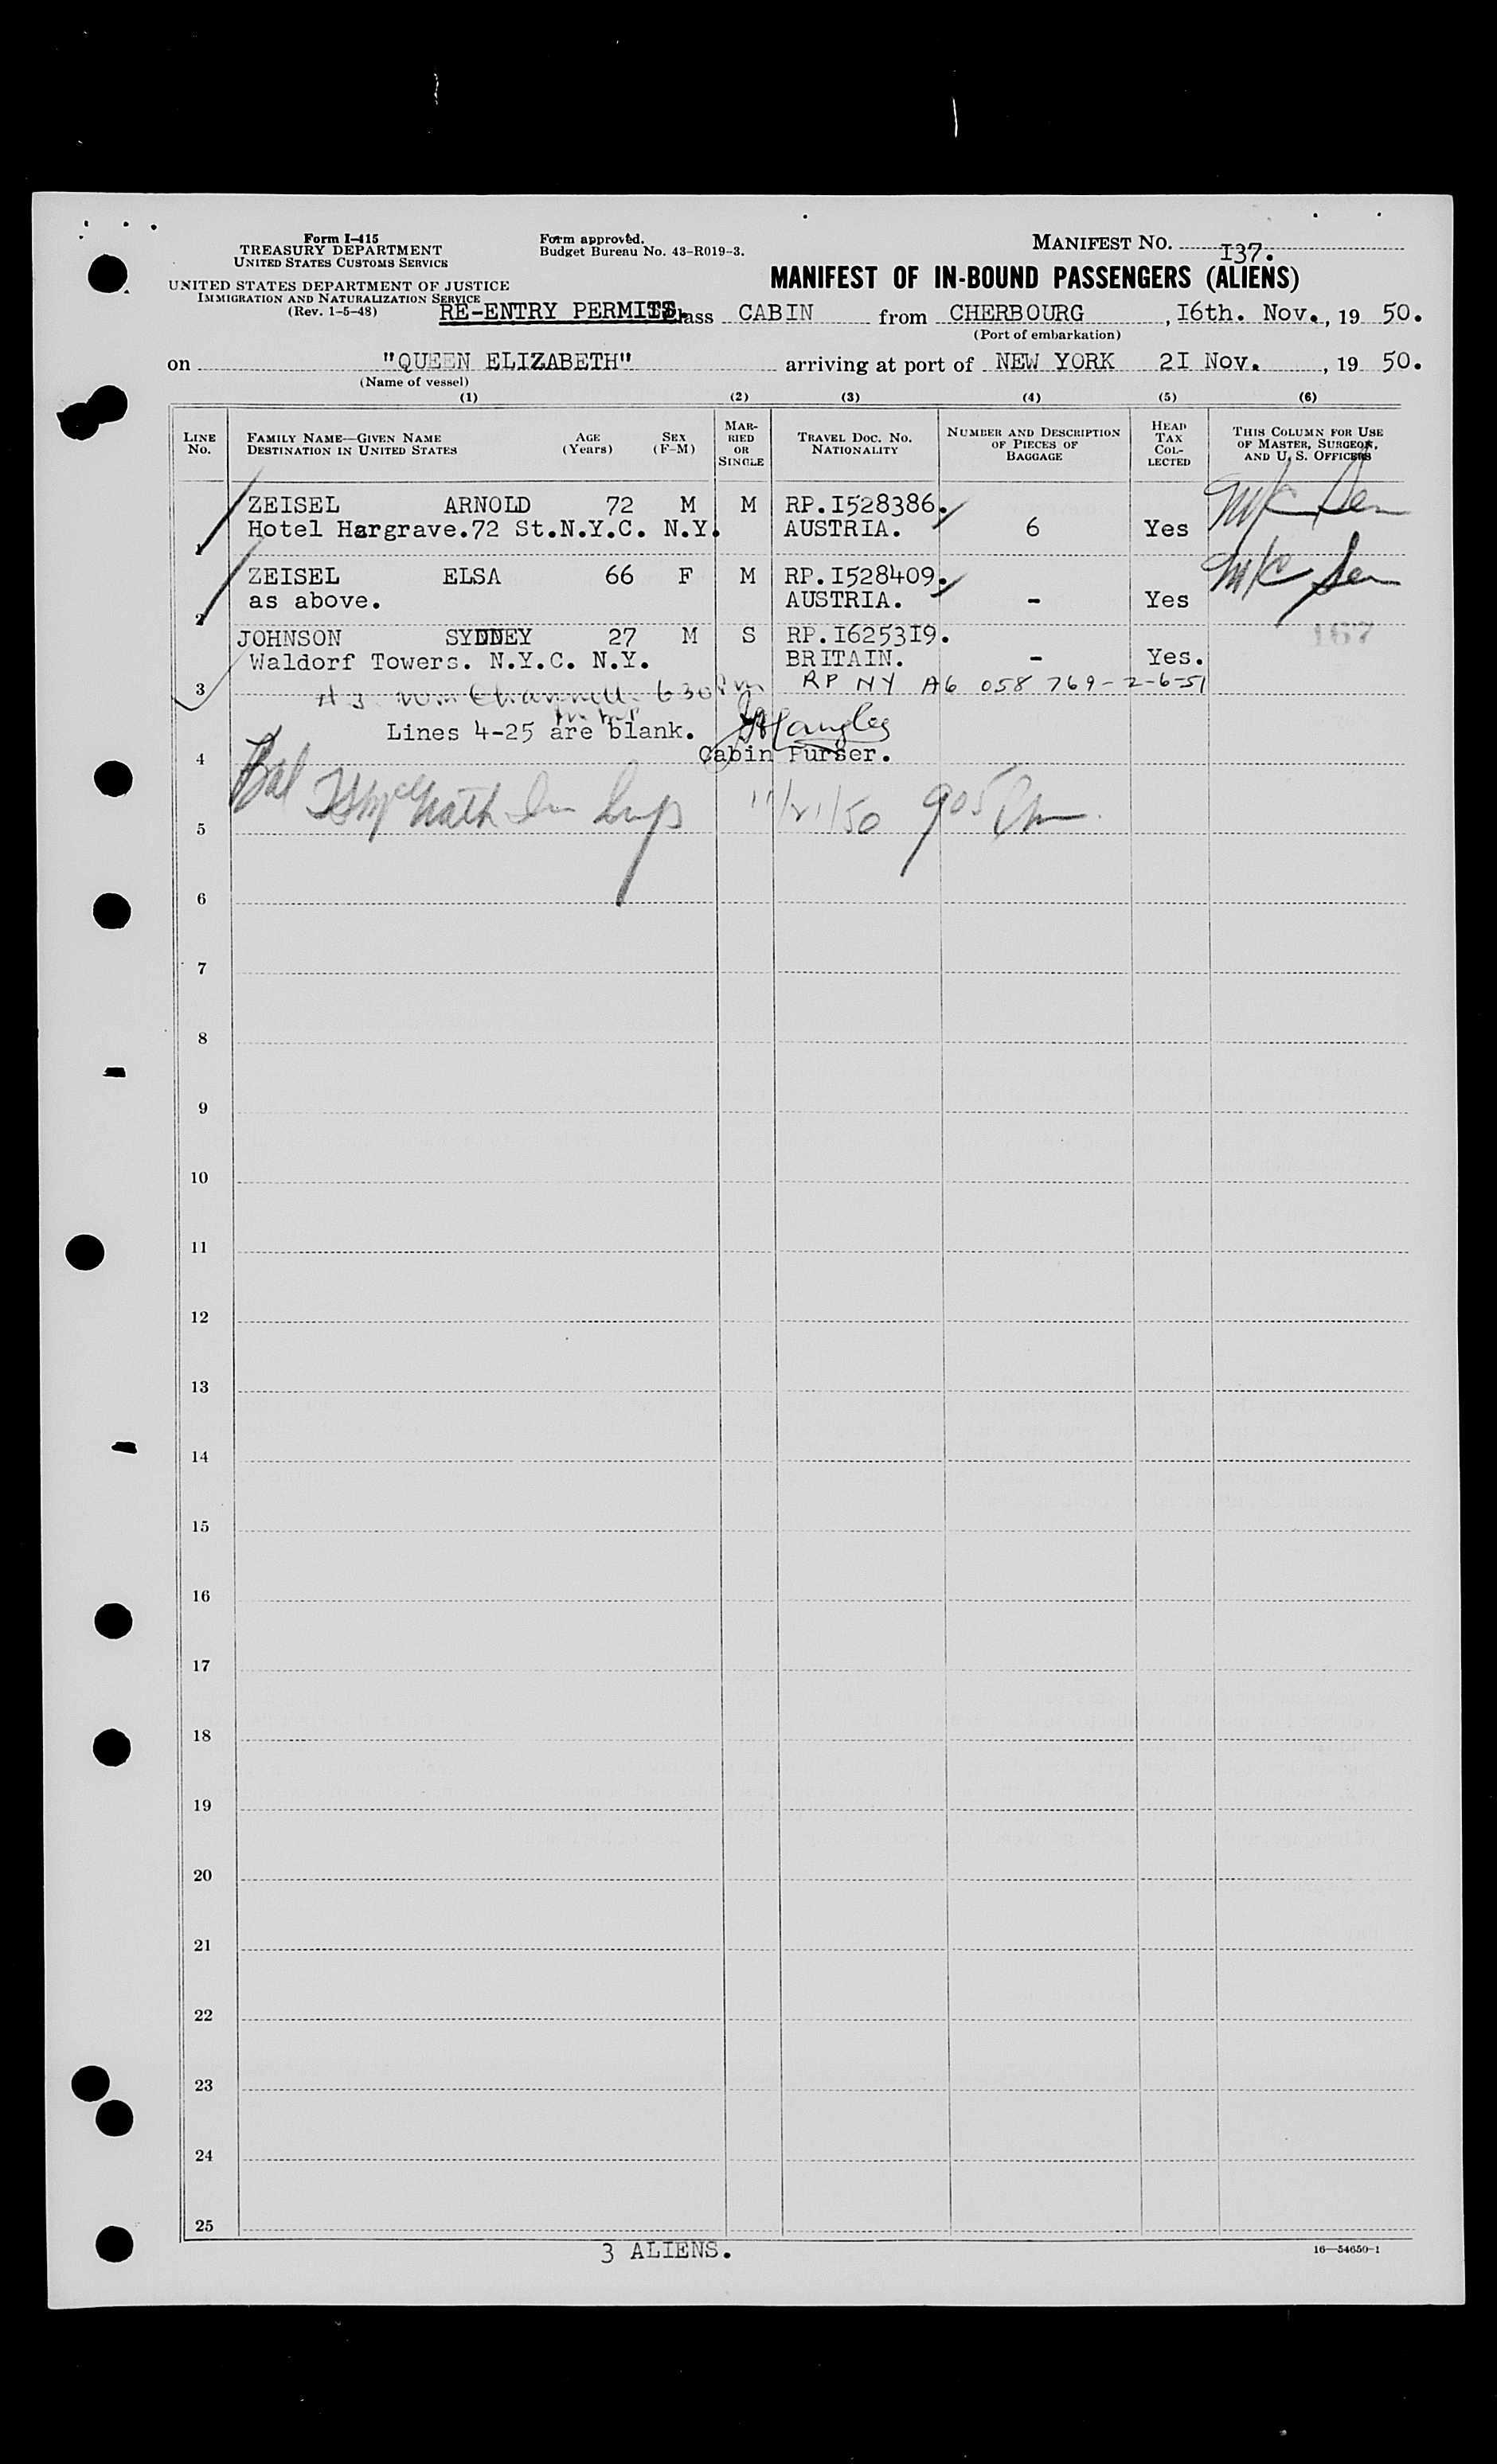 Form I-415
TREASURY DEPARTMENT
UNITED STATES CUSTOMS SERVICE
UNITED STATES DEPARTMENT OF JUSTICE
IMMIGRATION AND NATURALIZATION SERVICE
(Rev. 1-5-48)
Form approved.
Budget Bureau No. 43-R019-3.
MANIFEST NO. I37.
MANIFEST OF IN-BOUND PASSENGERS (ALIENS)
RE-ENTRY PERMITS. Class CABIN from CHERBOURG, I6th. Nov., 19 50.
(Port of embarkation)
on "QUEEN ELIZABETH" arriving at port of NEW YORK 2I Nov., 19 50.
(Name of vessel)
(1) (2) (3) (4) (5) (6)
LINE No.
FAMILY NAME—GIVEN NAME
DESTINATION IN UNITED STATES
AGE (Years)
SEX (F-M)
MARRIED OR SINGLE
TRAVEL DOC. NO.
NATIONALITY
NUMBER AND DESCRIPTION OF PIECES OF BAGGAGE
HEAD TAX COLLECTED
THIS COLUMN FOR USE OF MASTER, SURGEON, AND U. S. OFFICERS
ZEISEL ARNOLD 72 M M RP.I528386.
1 Hotel Hargrave.72 St.N.Y.C. N.Y. AUSTRIA. 6 Yes
ZEISEL ELSA 66 F M RP.I528409.
2 as above. AUSTRIA. - Yes
JOHNSON SYDNEY 27 M S RP.I6253I9. 167
Waldorf Towers. N.Y.C. N.Y. BRITAIN. - Yes.
3 RP NY A6 058 769-2-6-51
Lines 4-25 are blank.
4 Cabin Purser.
5 11/21/50 905 Pm
6
7
8
9
10
11
12
13
14
15
16
17
18
19
20
21
22
23
24
25
3 ALIENS.
16—54650-1